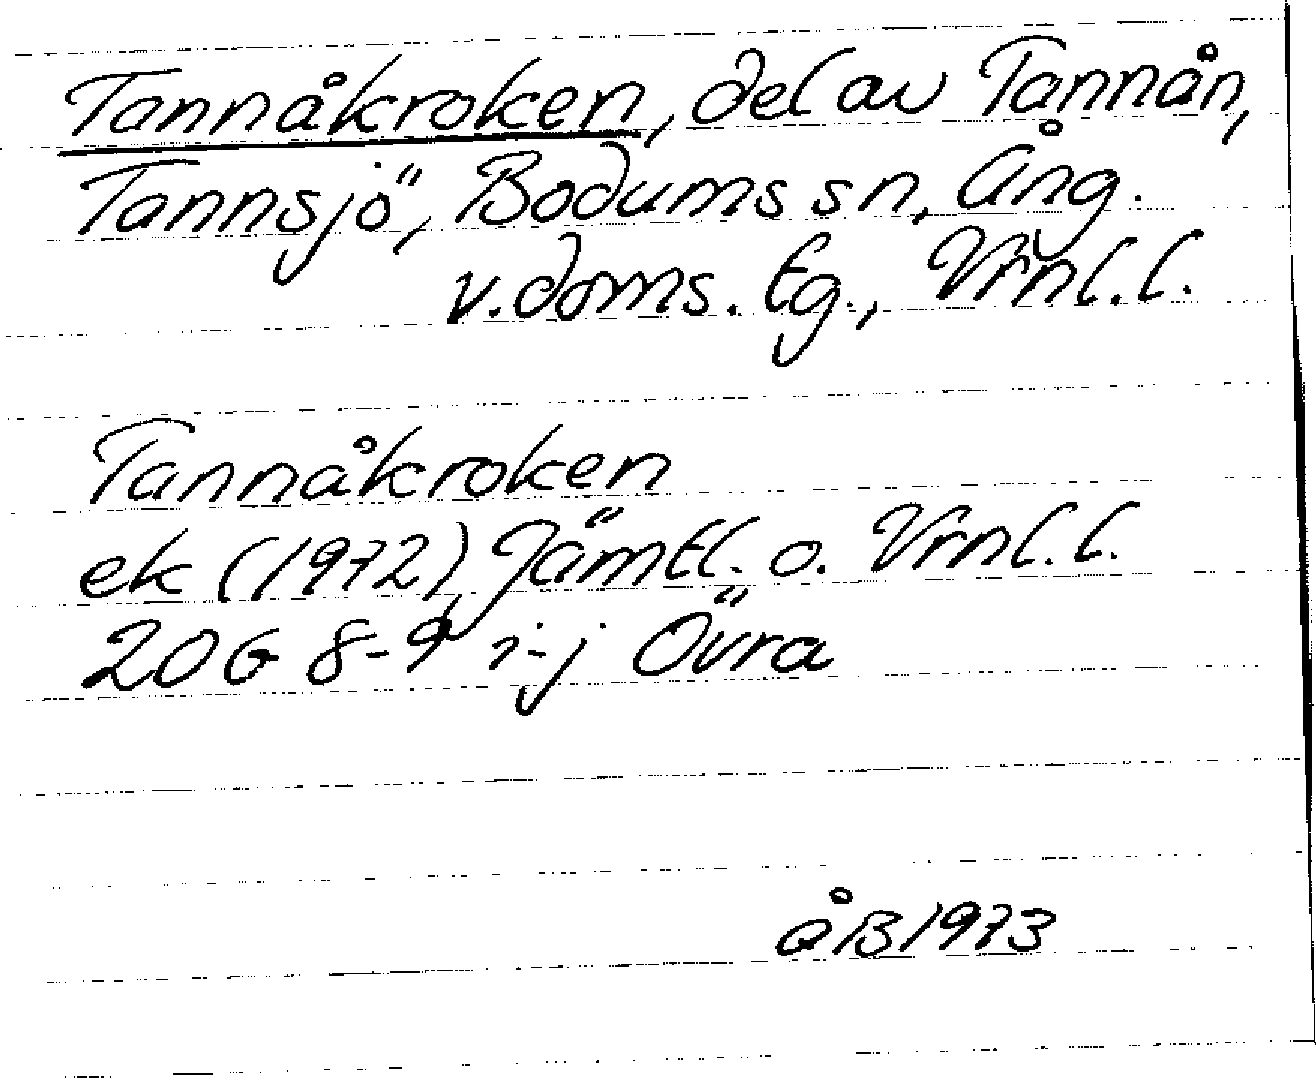 Tannåkroken, del av Tannån,
Tannsjö, Bodums sn, Ång.
v. doms. tg., Vrnl. l.
Tannåkroken
ek (1972), Jämtl. o. Vrnl. l.
20G 8-9 i-j Övra
ÅB 1973